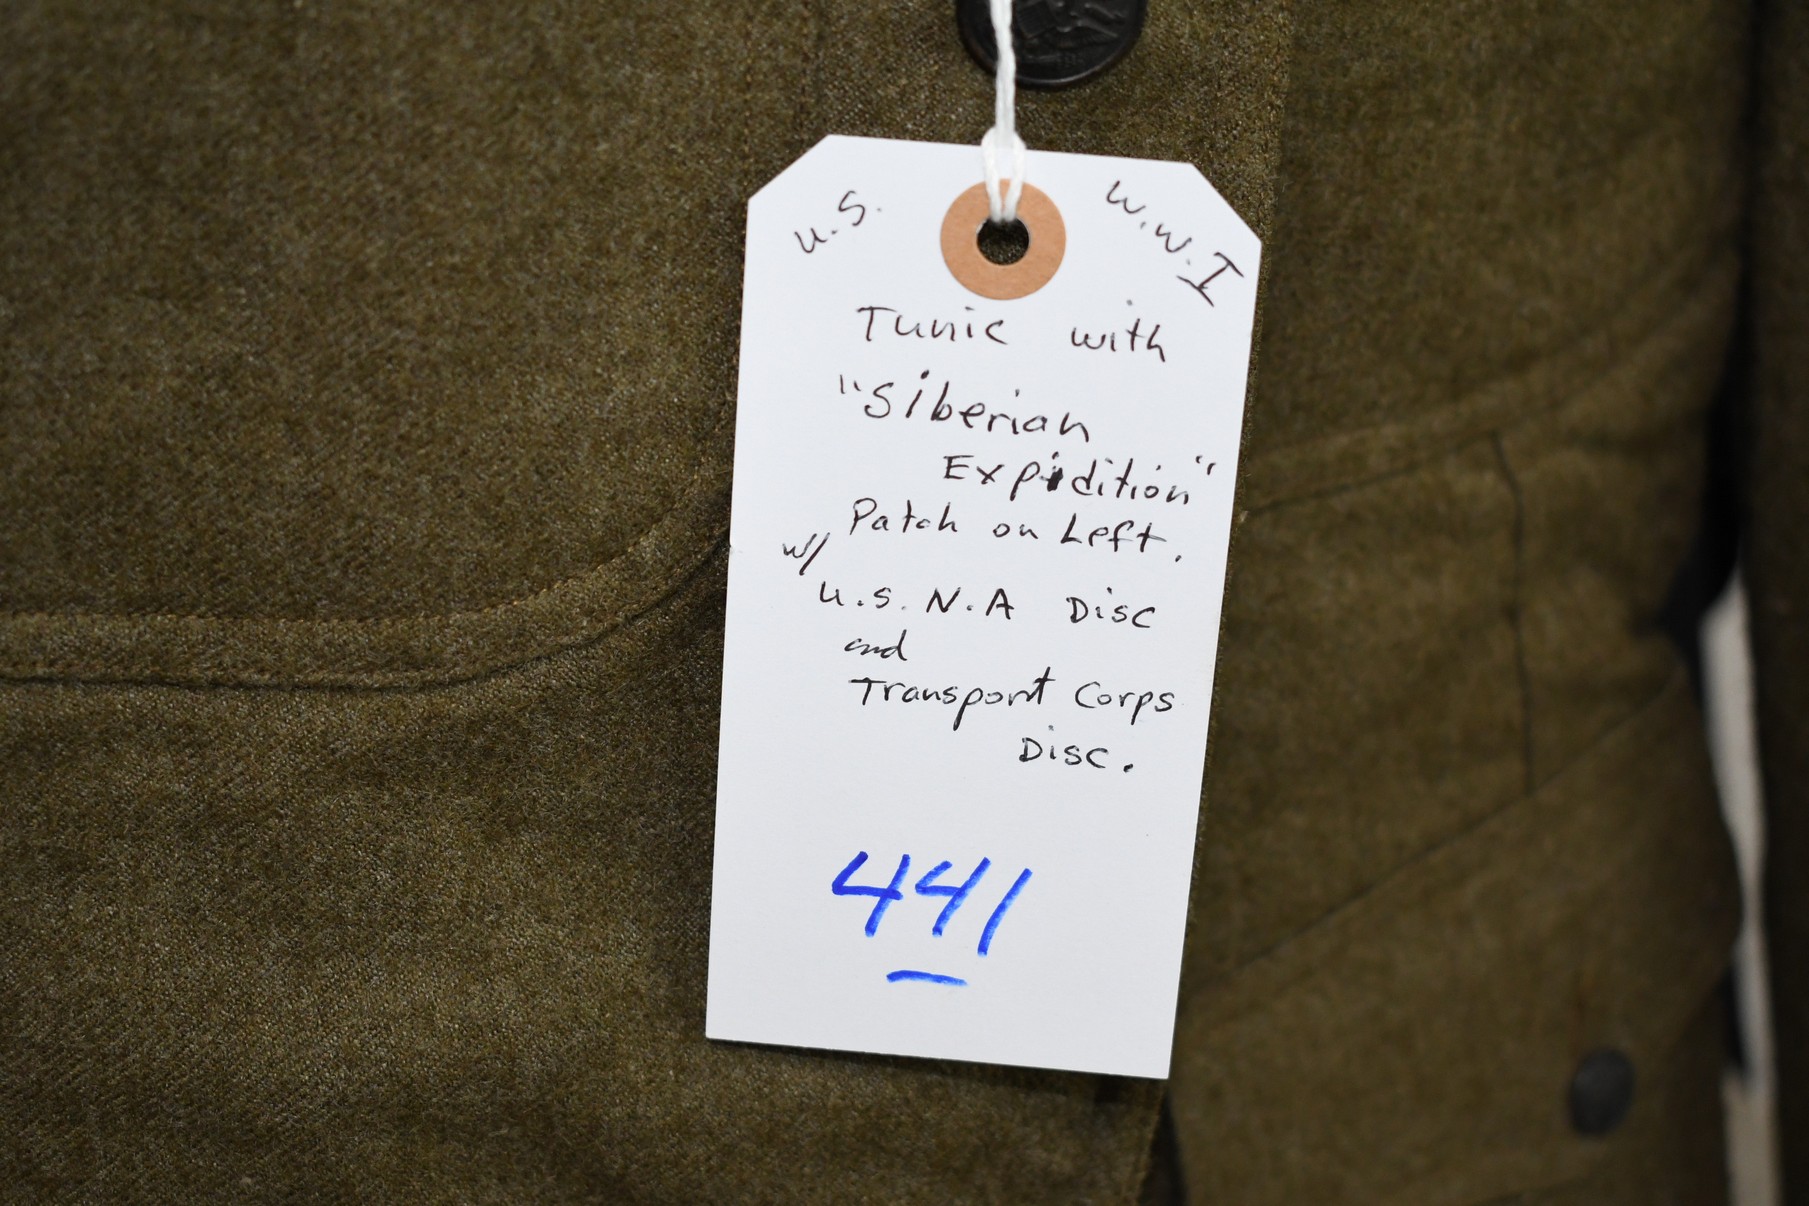 U.S. W.W.I
Tunic with
"Siberian
Expidition"
Patch on Left.
w/
U.S. N.A Disc
and
Transport Corps
Disc.
441